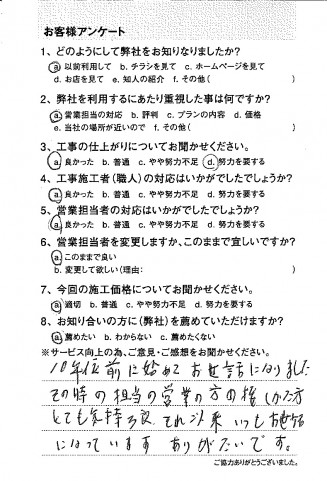 お客様アンケート
1、どのようにして弊社をお知りなりましたか?
a. 以前利用して b. チラシを見て c. ホームページを見て
d. お店を見て e. 知人の紹介 f. その他( )
2、弊社を利用するにあたり重視した事は何ですか?
a. 営業担当の対応 b. 評判 c. プランの内容 d. 価格
e. 当社の場所が近いので f. その他( )
3、工事の仕上がりについてお聞かせください。
a. 良かった b. 普通 c. やや努力不足 d. 努力を要する
4、工事施工者(職人)の対応はいかがでしたでしょうか?
a. 良かった b. 普通 c. やや努力不足 d. 努力を要する
5、営業担当者の対応はいかがでしたでしょうか?
a. 良かった b. 普通 c. やや努力不足 d. 努力を要する
6、営業担当者を変更しますか、このままで宜しいですか?
a. このままで良い
b. 変更して欲しい(理由: )
7、今回の施工価格についてお聞かせください。
a. 適切 b. 普通 c. やや努力不足 d. 努力を要する
8、お知り合いの方に(弊社)を薦めていただけますか?
a. 薦めたい b. わからない c. 薦めたくない
※サービス向上の為、ご意見・ご感想をお聞かせください。
10年位前に始めてお世話になりました
その時の担当の営業の方の接しかた方
とても気持ち良 それ以来いつもお世話
になっています ありがたいです。
ご協力ありがとうございました。